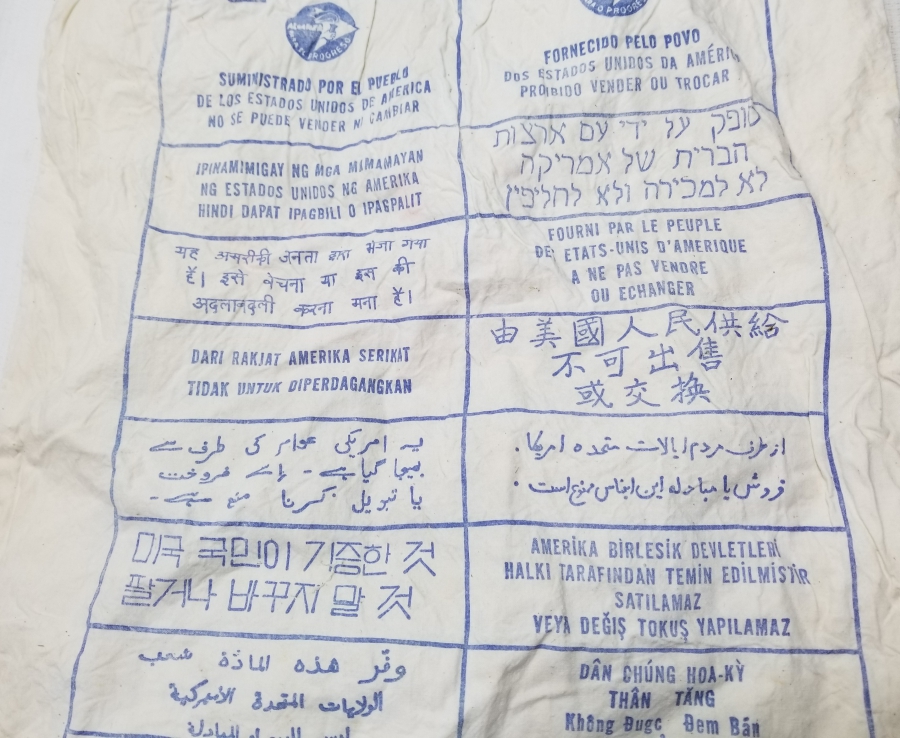 PROGRESO
SUMINISTRADO POR EL PUEBLO
DE LOS ESTADOS UNIDOS DE AMERICA
NO SE PUEDE VENDER NI CAMBIAR
PROGRESSO
FORNECIDO PELO POVO
DOS ESTADOS UNIDOS DA AMÉRICA
PROIBIDO VENDER OU TROCAR
IPINAMIMIGAY NG MGA MIMAMAYAN
NG ESTADOS UNIDOS NG AMERIKA
HINDI DAPAT IPAGBILI O IPAGPALIT
סופק על ידי עם ארצות
הברית של אמריקה
לא למכירה ולא לחליפין
यह अमरीकी जनता द्वारा भेजा गया
है। इसे बेचना या इस की
अदलाबदली करना मना है।
FOURNI PAR LE PEUPLE
DE ETATS-UNIS D'AMERIQUE
A NE PAS VENDRE
OU ECHANGER
DARI RAKJAT AMERIKA SERIKAT
TIDAK UNTUK DIPERDAGANGKAN
由美國人民供給
不可出售
或交換
یہ امریکی عوام کی طرف سے
بھیجا گیا ہے - اسے فروخت
یا تبدیل کرنا منع ہے -
از طرف مردم ایالات متحده امریکا.
فروش یا مبادله این اجناس ممنوع است.
미국 국민이 기증한 것
팔거나 바꾸지 말 것
AMERIKA BIRLESIK DEVLETLERI
HALKI TARAFINDAN TEMIN EDILMISTIR
SATILAMAZ
VEYA DEĞIŞ TOKUŞ YAPILAMAZ
وفّر هذه المادّة شعب
الولايات المتحدة الأميركية
ليس للبيع او للمبادلة
DÂN CHÚNG HOA-KỲ
THÂN TĂNG
Không Đugc Đem Bán